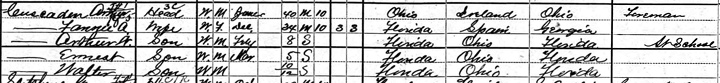 Cuscaden Arthur Head W M June 40 M 10 Ohio Ireland Ohio Fireman
— Fannie A Wife W F Dec 34 M 10 3 3 Florida Spain Georgia
— Arthur W. Son W M July 8 S Florida Ohio Florida At School
— Ernest Son W M Mar 5 S Florida Ohio Florida
— Walter Son W M 10/12 S Florida Ohio Florida